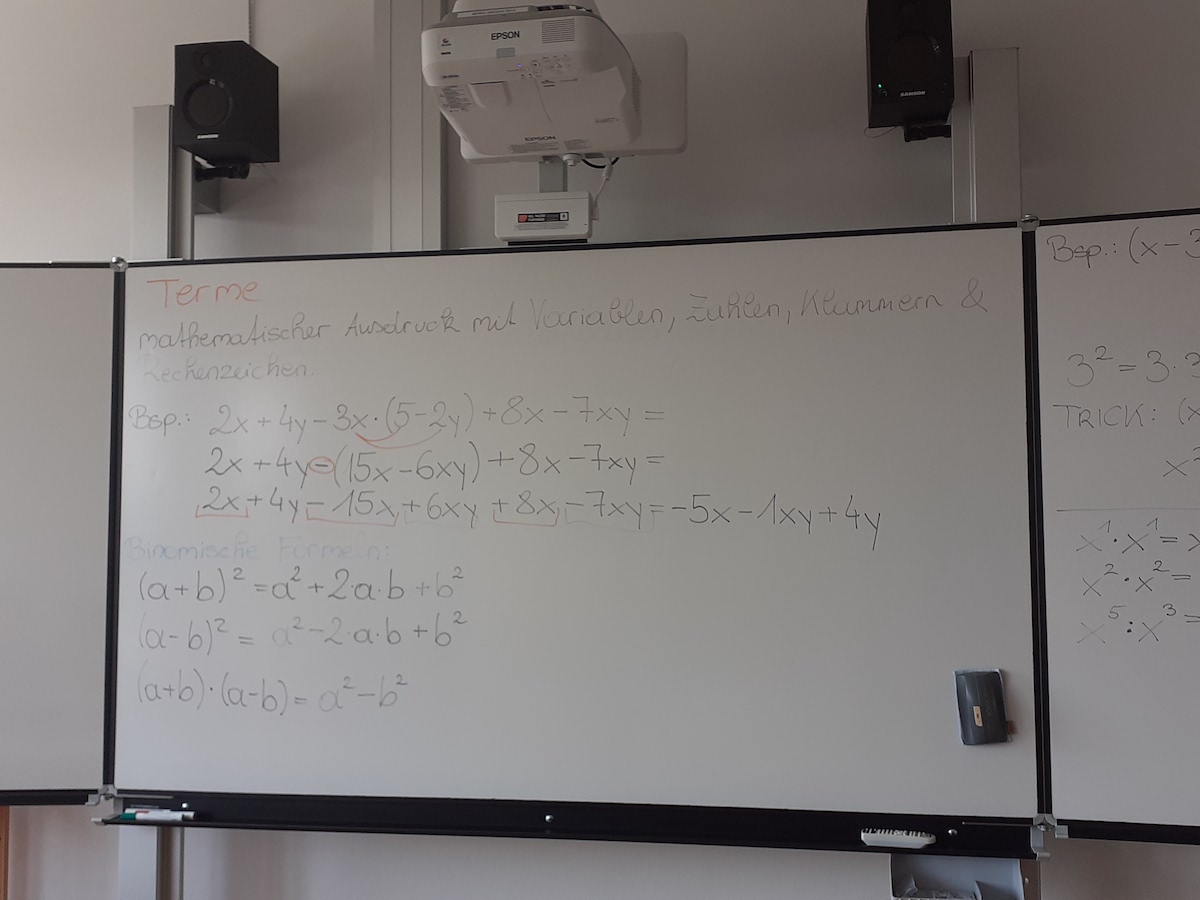 EPSON
EPSON
SAMSON
SAMSON
Terme
mathematischer Ausdruck mit Variablen, Zahlen, Klammern &
Rechenzeichen.
Bsp.: 2x + 4y - 3x·(5-2y) + 8x - 7xy =
2x + 4y - (15x - 6xy) + 8x - 7xy =
2x + 4y - 15x + 6xy + 8x - 7xy = -5x - 1xy + 4y
Binomische Formeln:
(a+b)² = a² + 2·a·b + b²
(a-b)² = a² - 2·a·b + b²
(a+b)·(a-b) = a² - b²
Bsp.: (x - 3
3² = 3·3
TRICK: (x
x²
x¹·x¹ = x
x²·x² =
x⁵:x³ =